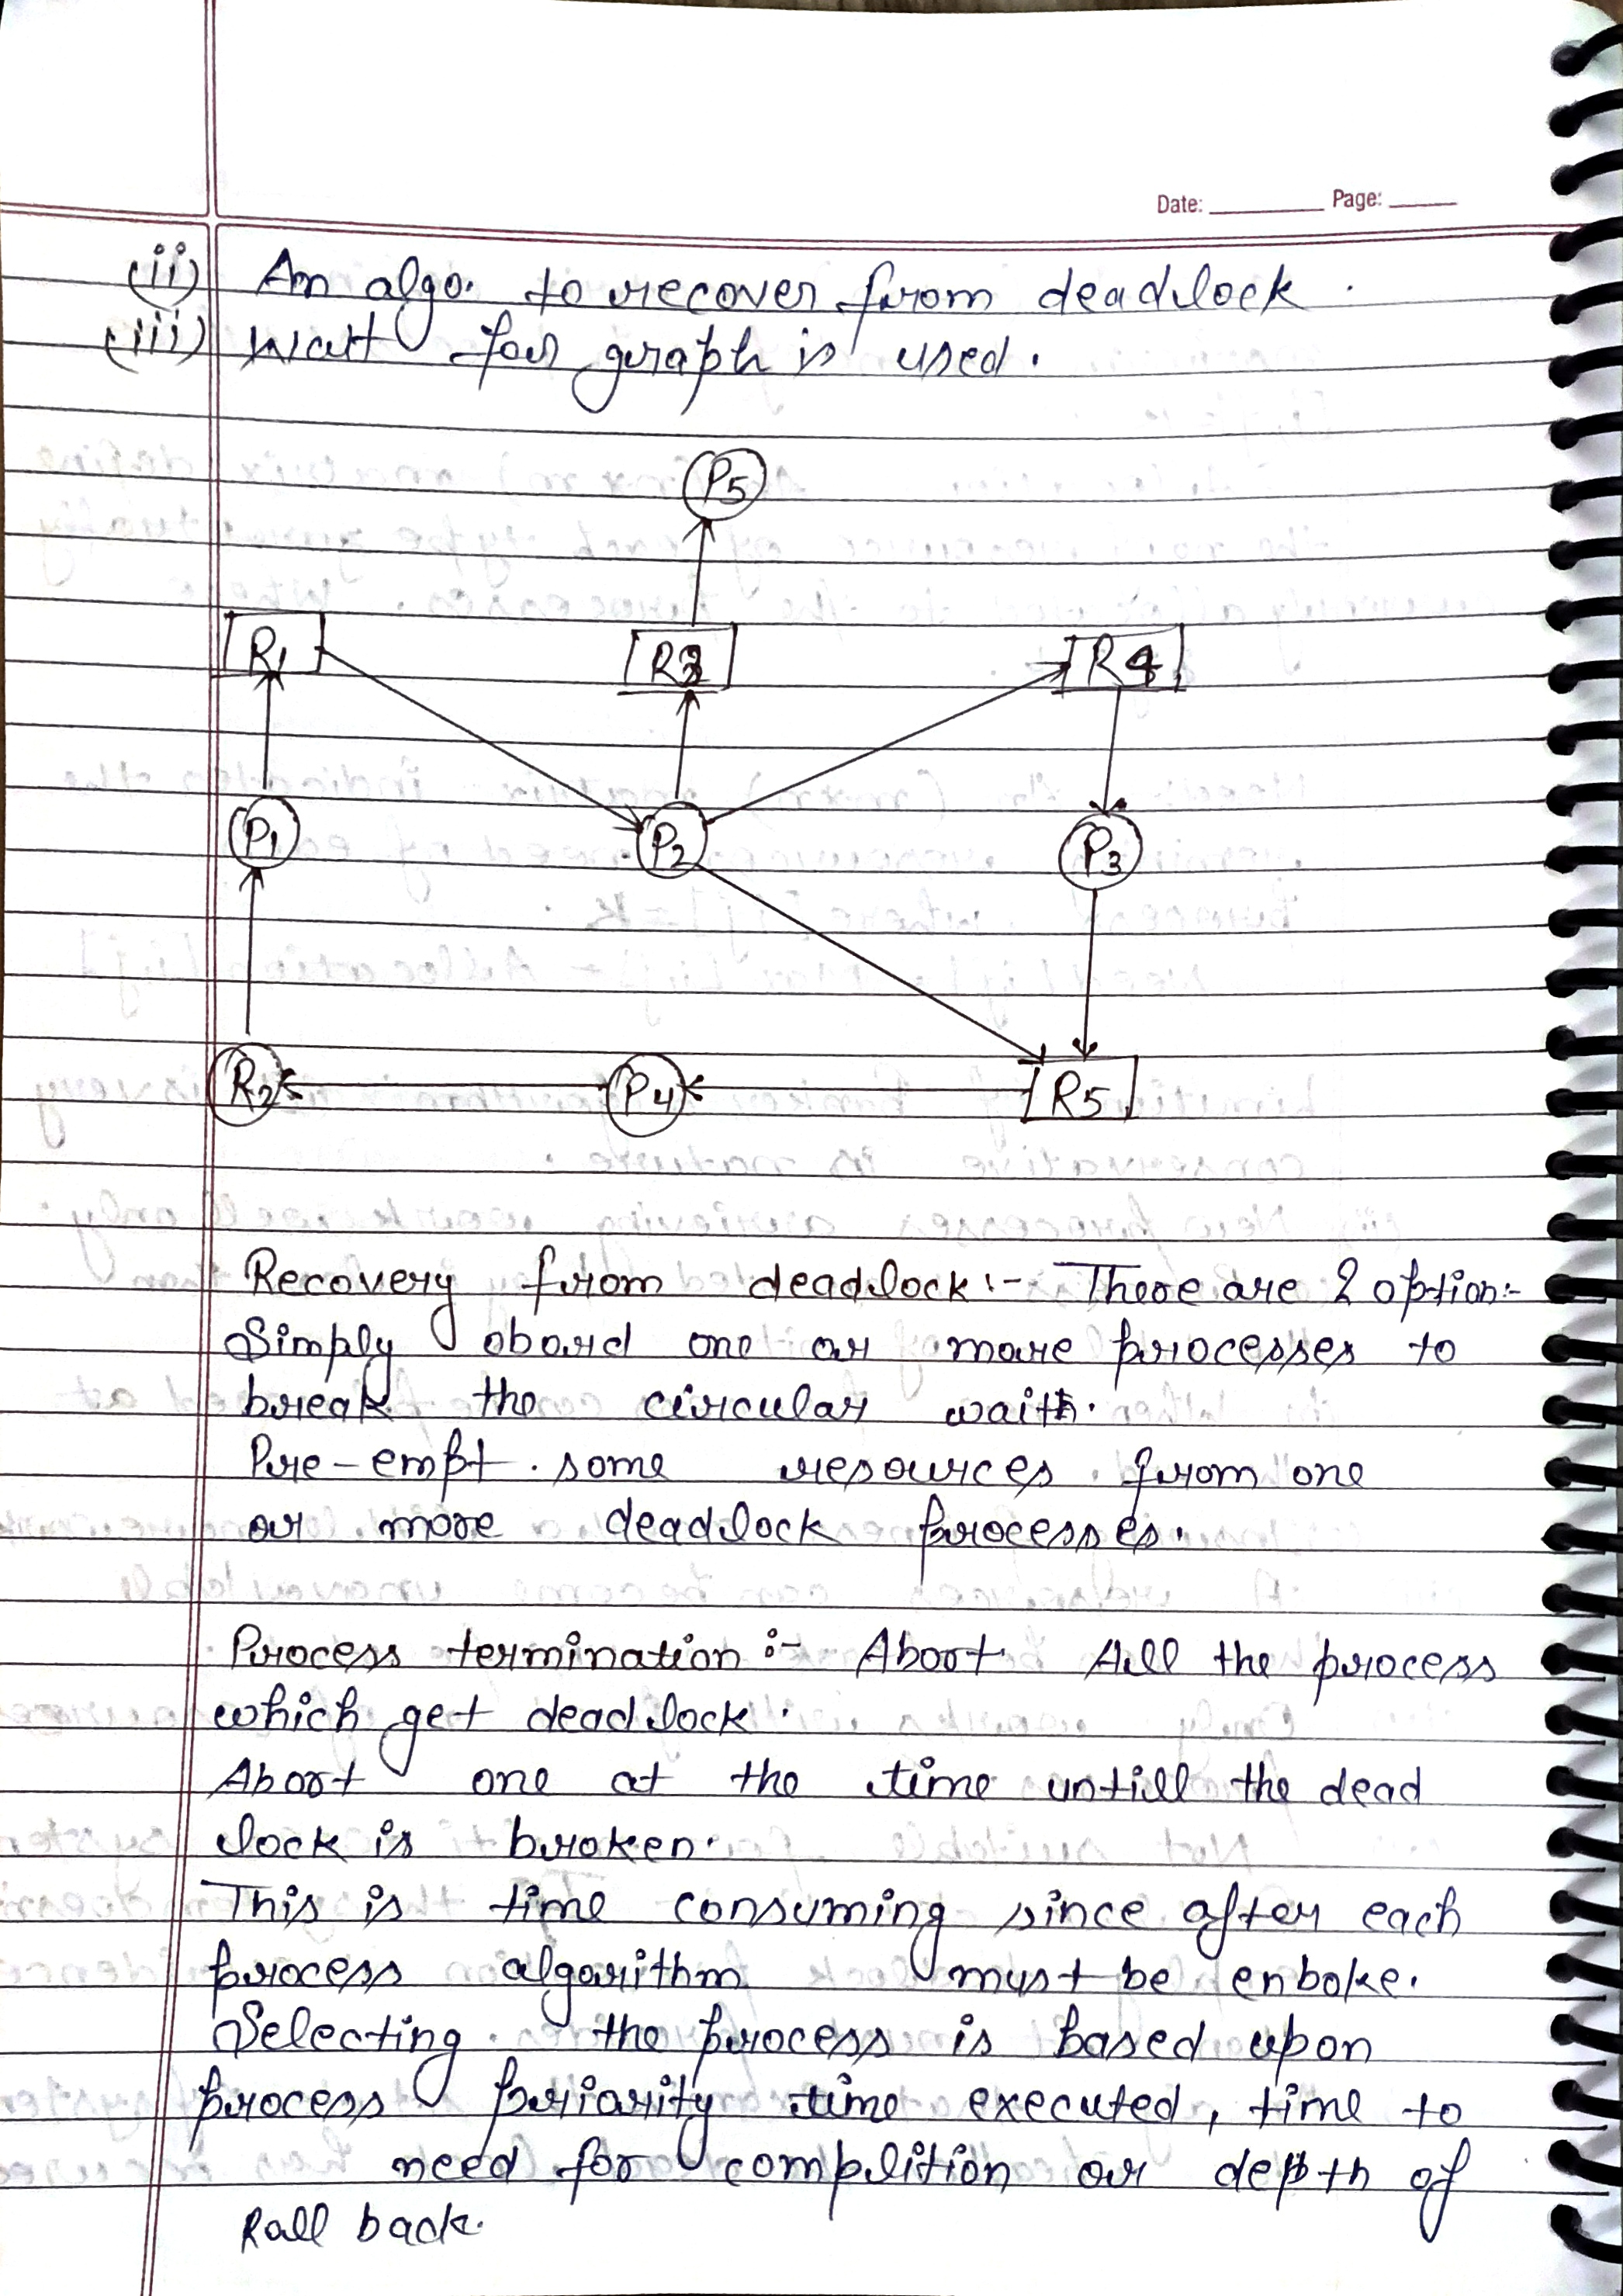 Date: Page:
(ii) An algo. to recover from deadlock.
(iii) Wait for graph is used.
P5
R1 R3 R4
P1 P2 P3
R2 P4 R5
Recovery from deadlock:- There are 2 option:-
Simply aboard one or more processes to
break the circular wait.
Pre-empt some resources from one
or more deadlock processes.
Process termination :- Abort All the process
which get deadlock.
Abort one at the time untill the dead
lock is broken.
This is time consuming since after each
process algorithm must be enboke.
Selecting the process is based upon
process periarity time executed, time to
need for complition or depth of
Rall back.